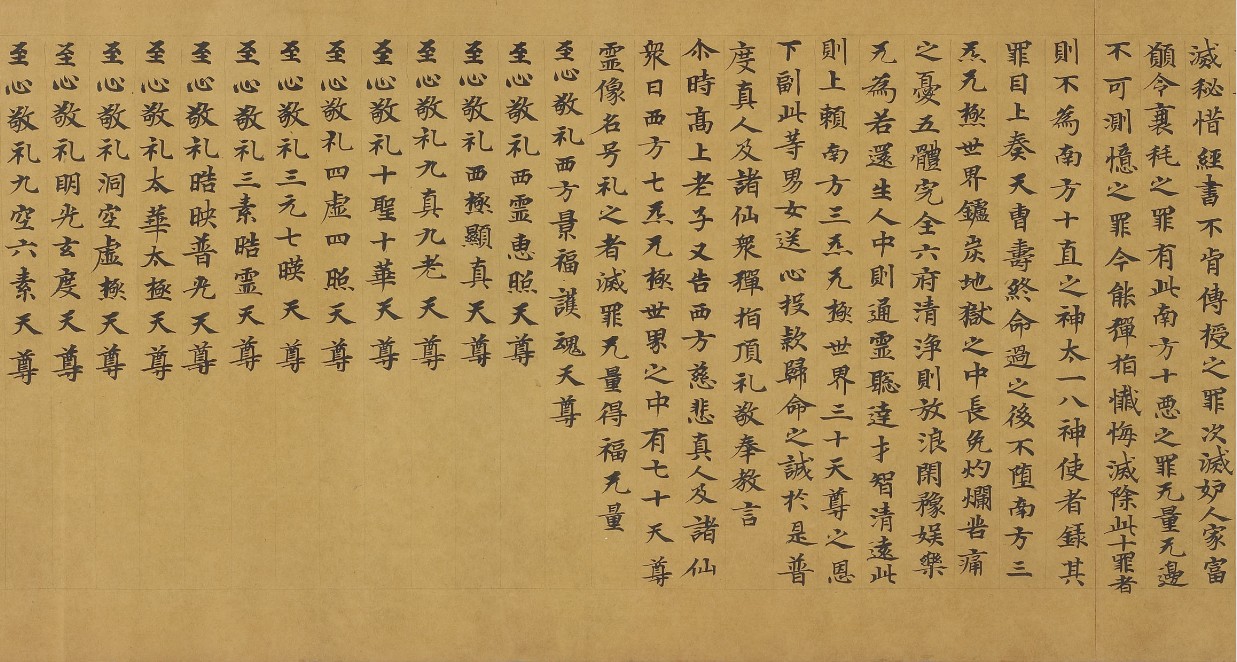 滅秘惜經書不肯傳授之罪次滅妒人家富
願令衰耗之罪有此南方十惡之罪无量无邊
不可測憶之罪今能彈指懺悔滅除此十罪者
則不為南方十直之神太一八神使者錄其
罪目上奏天曹壽終命過之後不墮南方三
炁无極世界鑪炭地獄之中長免灼爛苦痛
之憂五體完全六府清淨則放浪閑豫娛樂
无為若還生人中則通靈聡達才智清遠此
則上賴南方三炁无極世界三十天尊之恩
下副此等男女送心投款歸命之誠於是普
度真人及諸仙衆彈指頂礼敬奉教言
尒時髙上老子又告西方慈悲真人及諸仙
衆曰西方七炁无極世界之中有七十天尊
霊像名号礼之者滅罪无量得福无量
至心敬礼西方景福護魂天尊
至心敬礼西霊恵照天尊
至心敬礼西極顯真天尊
至心敬礼九真九老天尊
至心敬礼十聖十華天尊
至心敬礼四虛四照天尊
至心敬礼三元七暎天尊
至心敬礼三素晧霊天尊
至心敬礼晧映普光天尊
至心敬礼太華太極天尊
至心敬礼洞空虛極天尊
至心敬礼明光玄度天尊
至心敬礼九空六素天尊